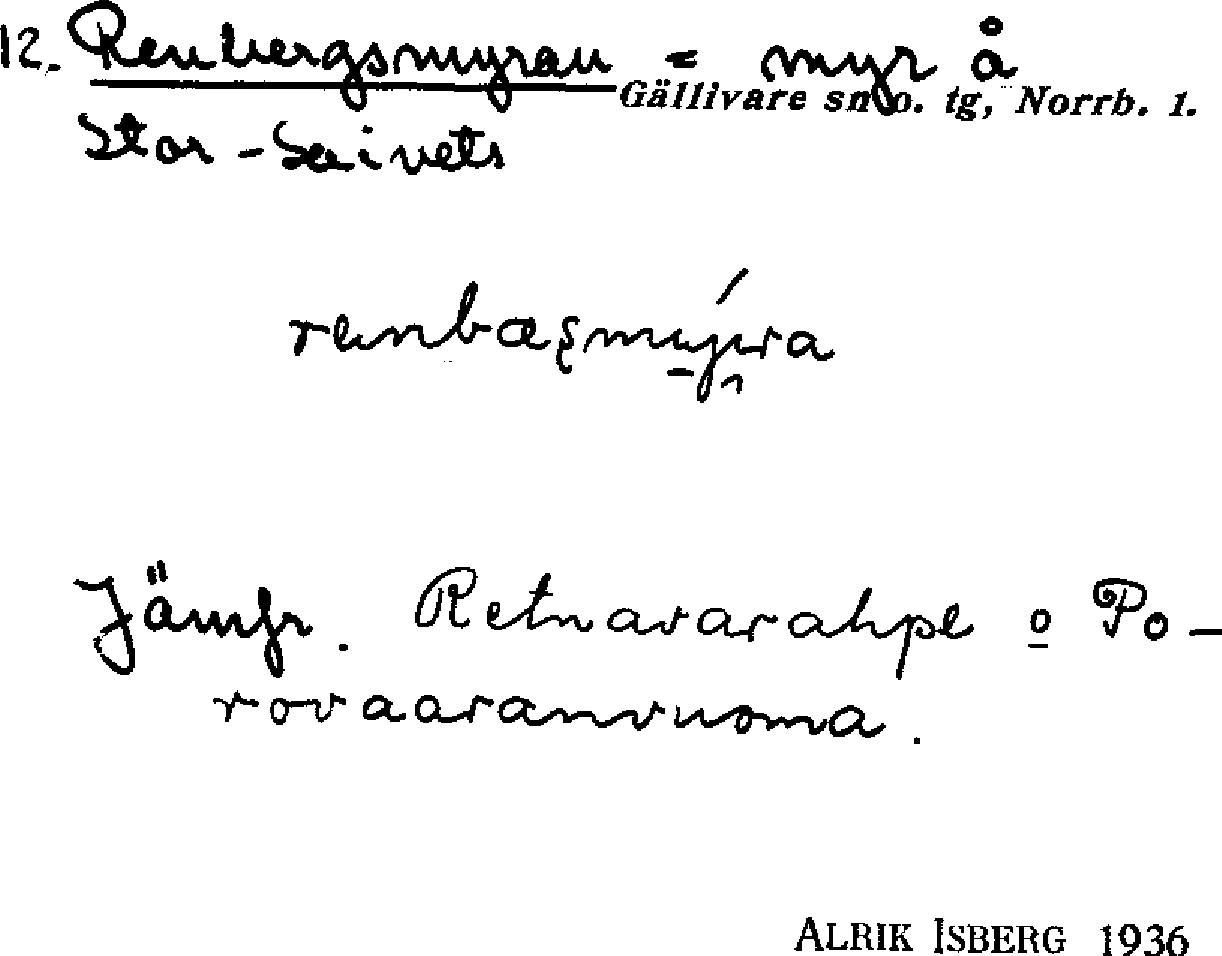 12. Renbergsmyran = myr å
Gällivare sn o. tg, Norrb. l.
Stor-Saivets
Jämfr. Retnavarahpe o Po-
rovaaranvuoma.
ALRIK ISBERG 1936